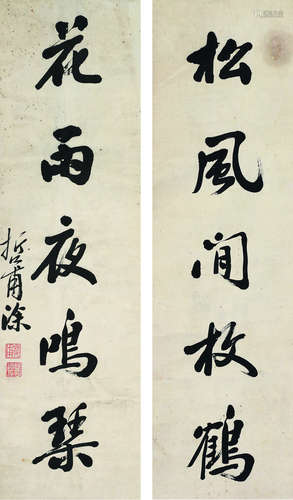 松風閒放鶴
花雨夜鳴琴
哲甫涂